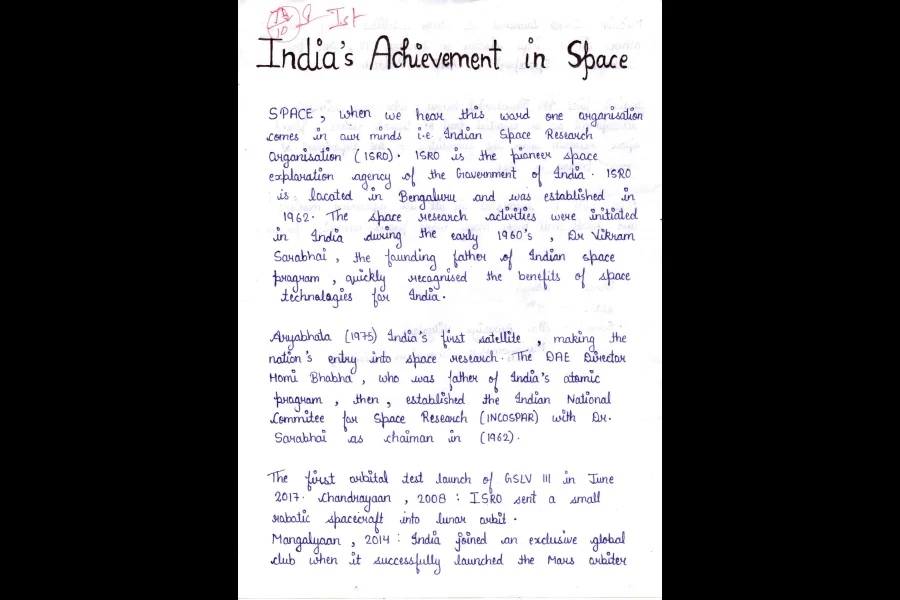 Ist
India's Achievement in Space
SPACE, when we hear this word one organisation
comes in our minds i.e. Indian Space Research
Organisation (ISRO). ISRO is the pioneer space
exploration agency of the Government of India. ISRO
is located in Bengaluru and was established in
1962. The space research activities were initiated
in India during the early 1960's, Dr Vikram
Sarabhai, the founding father of Indian space
program, quickly recognised the benefits of space
technologies for India.
Aryabhata (1975) India's first satellite, making the
nation's entry into space research. The DAE Director
Homi Bhabha, who was father of India's atomic
program, then, established the Indian National
Commitee for Space Research (INCOSPAR) with Dr.
Sarabhai as chaiman in (1962).
The first orbital test launch of GSLV III in June
2017. Chandrayaan, 2008: ISRO sent a small
robatic spacecraft into lunar orbit.
Mangalyaan, 2014: India joined an exclusive global
club when it successfully launched the Mars orbiter